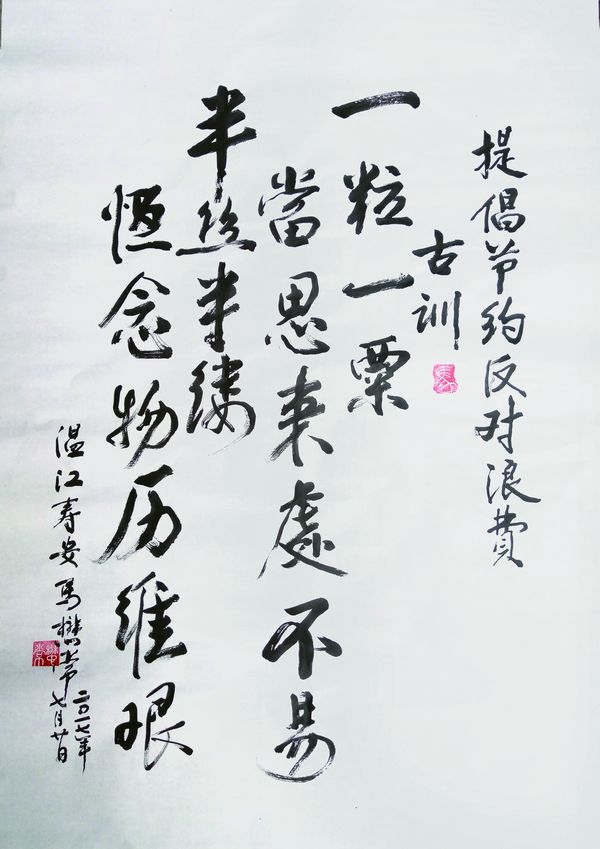 提倡节约反对浪费
古训
一粒一粟
當思来處不易
半丝半缕
恆念物历维艰
温江寿安馬常
二〇一七年
七月廿日